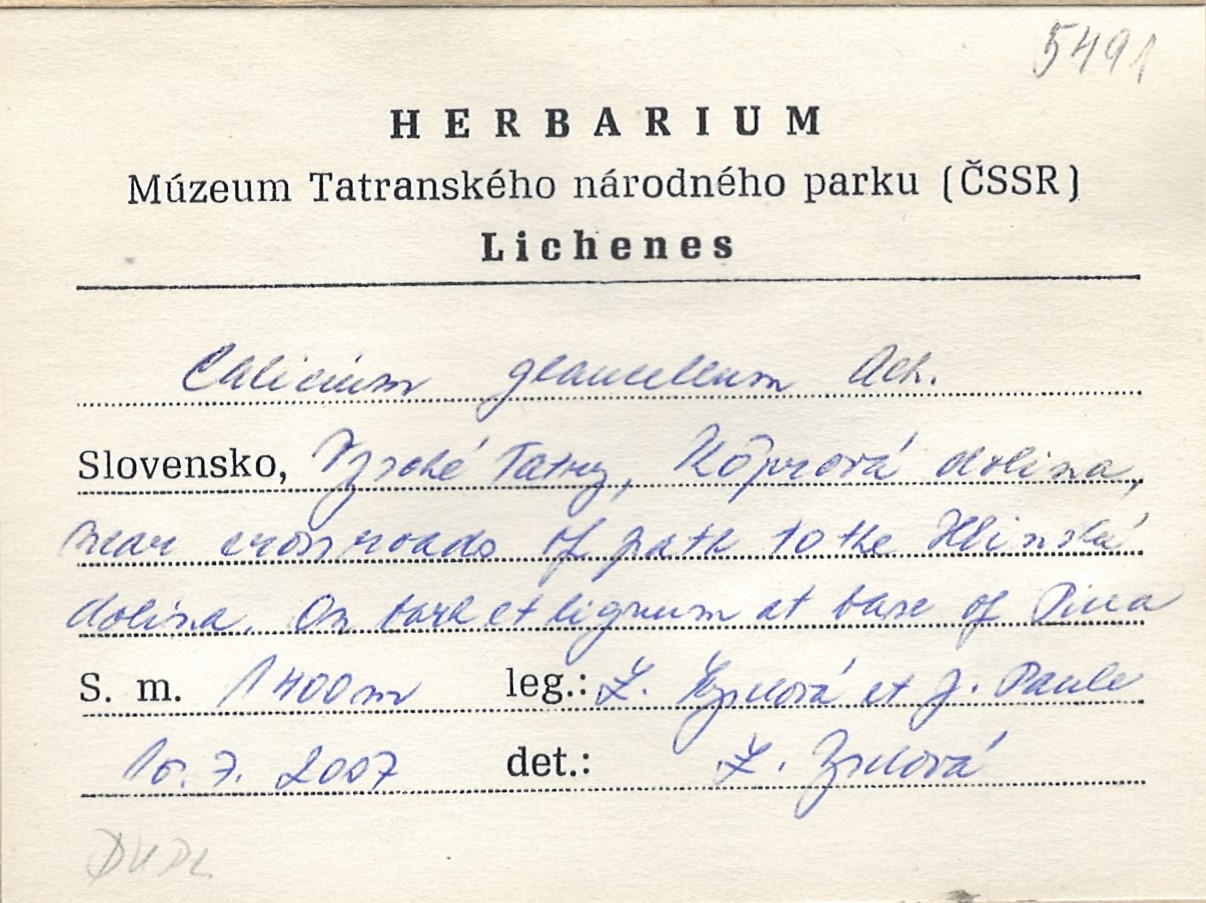 5491
HERBARIUM
Múzeum Tatranského národného parku (ČSSR)
Lichenes
Calicium glaucellum Ach.
Slovensko, Vysoké Tatry, Kôprová dolina,
near crossroads of path to the Hlinská
dolina. On bark et lignum at base of Picea
S. m. 1400m leg.: et J. Paule
2007 det.:
DUPL.